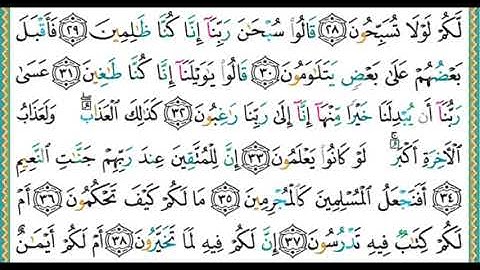 لَّكُمْ لَوْلَا تُسَبِّحُونَ ٢٨ قَالُوا۟ سُبْحَـٰنَ رَبِّنَآ إِنَّا كُنَّا ظَـٰلِمِينَ ٢٩ فَأَقْبَلَ
بَعْضُهُمْ عَلَىٰ بَعْضٍ يَتَلَـٰوَمُونَ ٣٠ قَالُوا۟ يَـٰوَيْلَنَآ إِنَّا كُنَّا طَـٰغِينَ ٣١ عَسَىٰ
رَبُّنَآ أَن يُبْدِلَنَا خَيْرًا مِّنْهَآ إِنَّآ إِلَىٰ رَبِّنَا رَٰغِبُونَ ٣٢ كَذَٰلِكَ ٱلْعَذَابُ ۖ وَلَعَذَابُ
ٱلْـَٔاخِرَةِ أَكْبَرُ ۚ لَوْ كَانُوا۟ يَعْلَمُونَ ٣٣ إِنَّ لِلْمُتَّقِينَ عِندَ رَبِّهِمْ جَنَّـٰتِ ٱلنَّعِيمِ
٣٤ أَفَنَجْعَلُ ٱلْمُسْلِمِينَ كَٱلْمُجْرِمِينَ ٣٥ مَا لَكُمْ كَيْفَ تَحْكُمُونَ ٣٦ أَمْ
لَكُمْ كِتَـٰبٌ فِيهِ تَدْرُسُونَ ٣٧ إِنَّ لَكُمْ فِيهِ لَمَا تَخَيَّرُونَ ٣٨ أَمْ لَكُمْ أَيْمَـٰنٌ